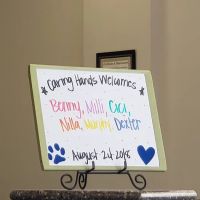 Caring Hands Welcomes
Benny, Milli, CiCi,
Nilla, Murphy, Dexter
August 24, 2018